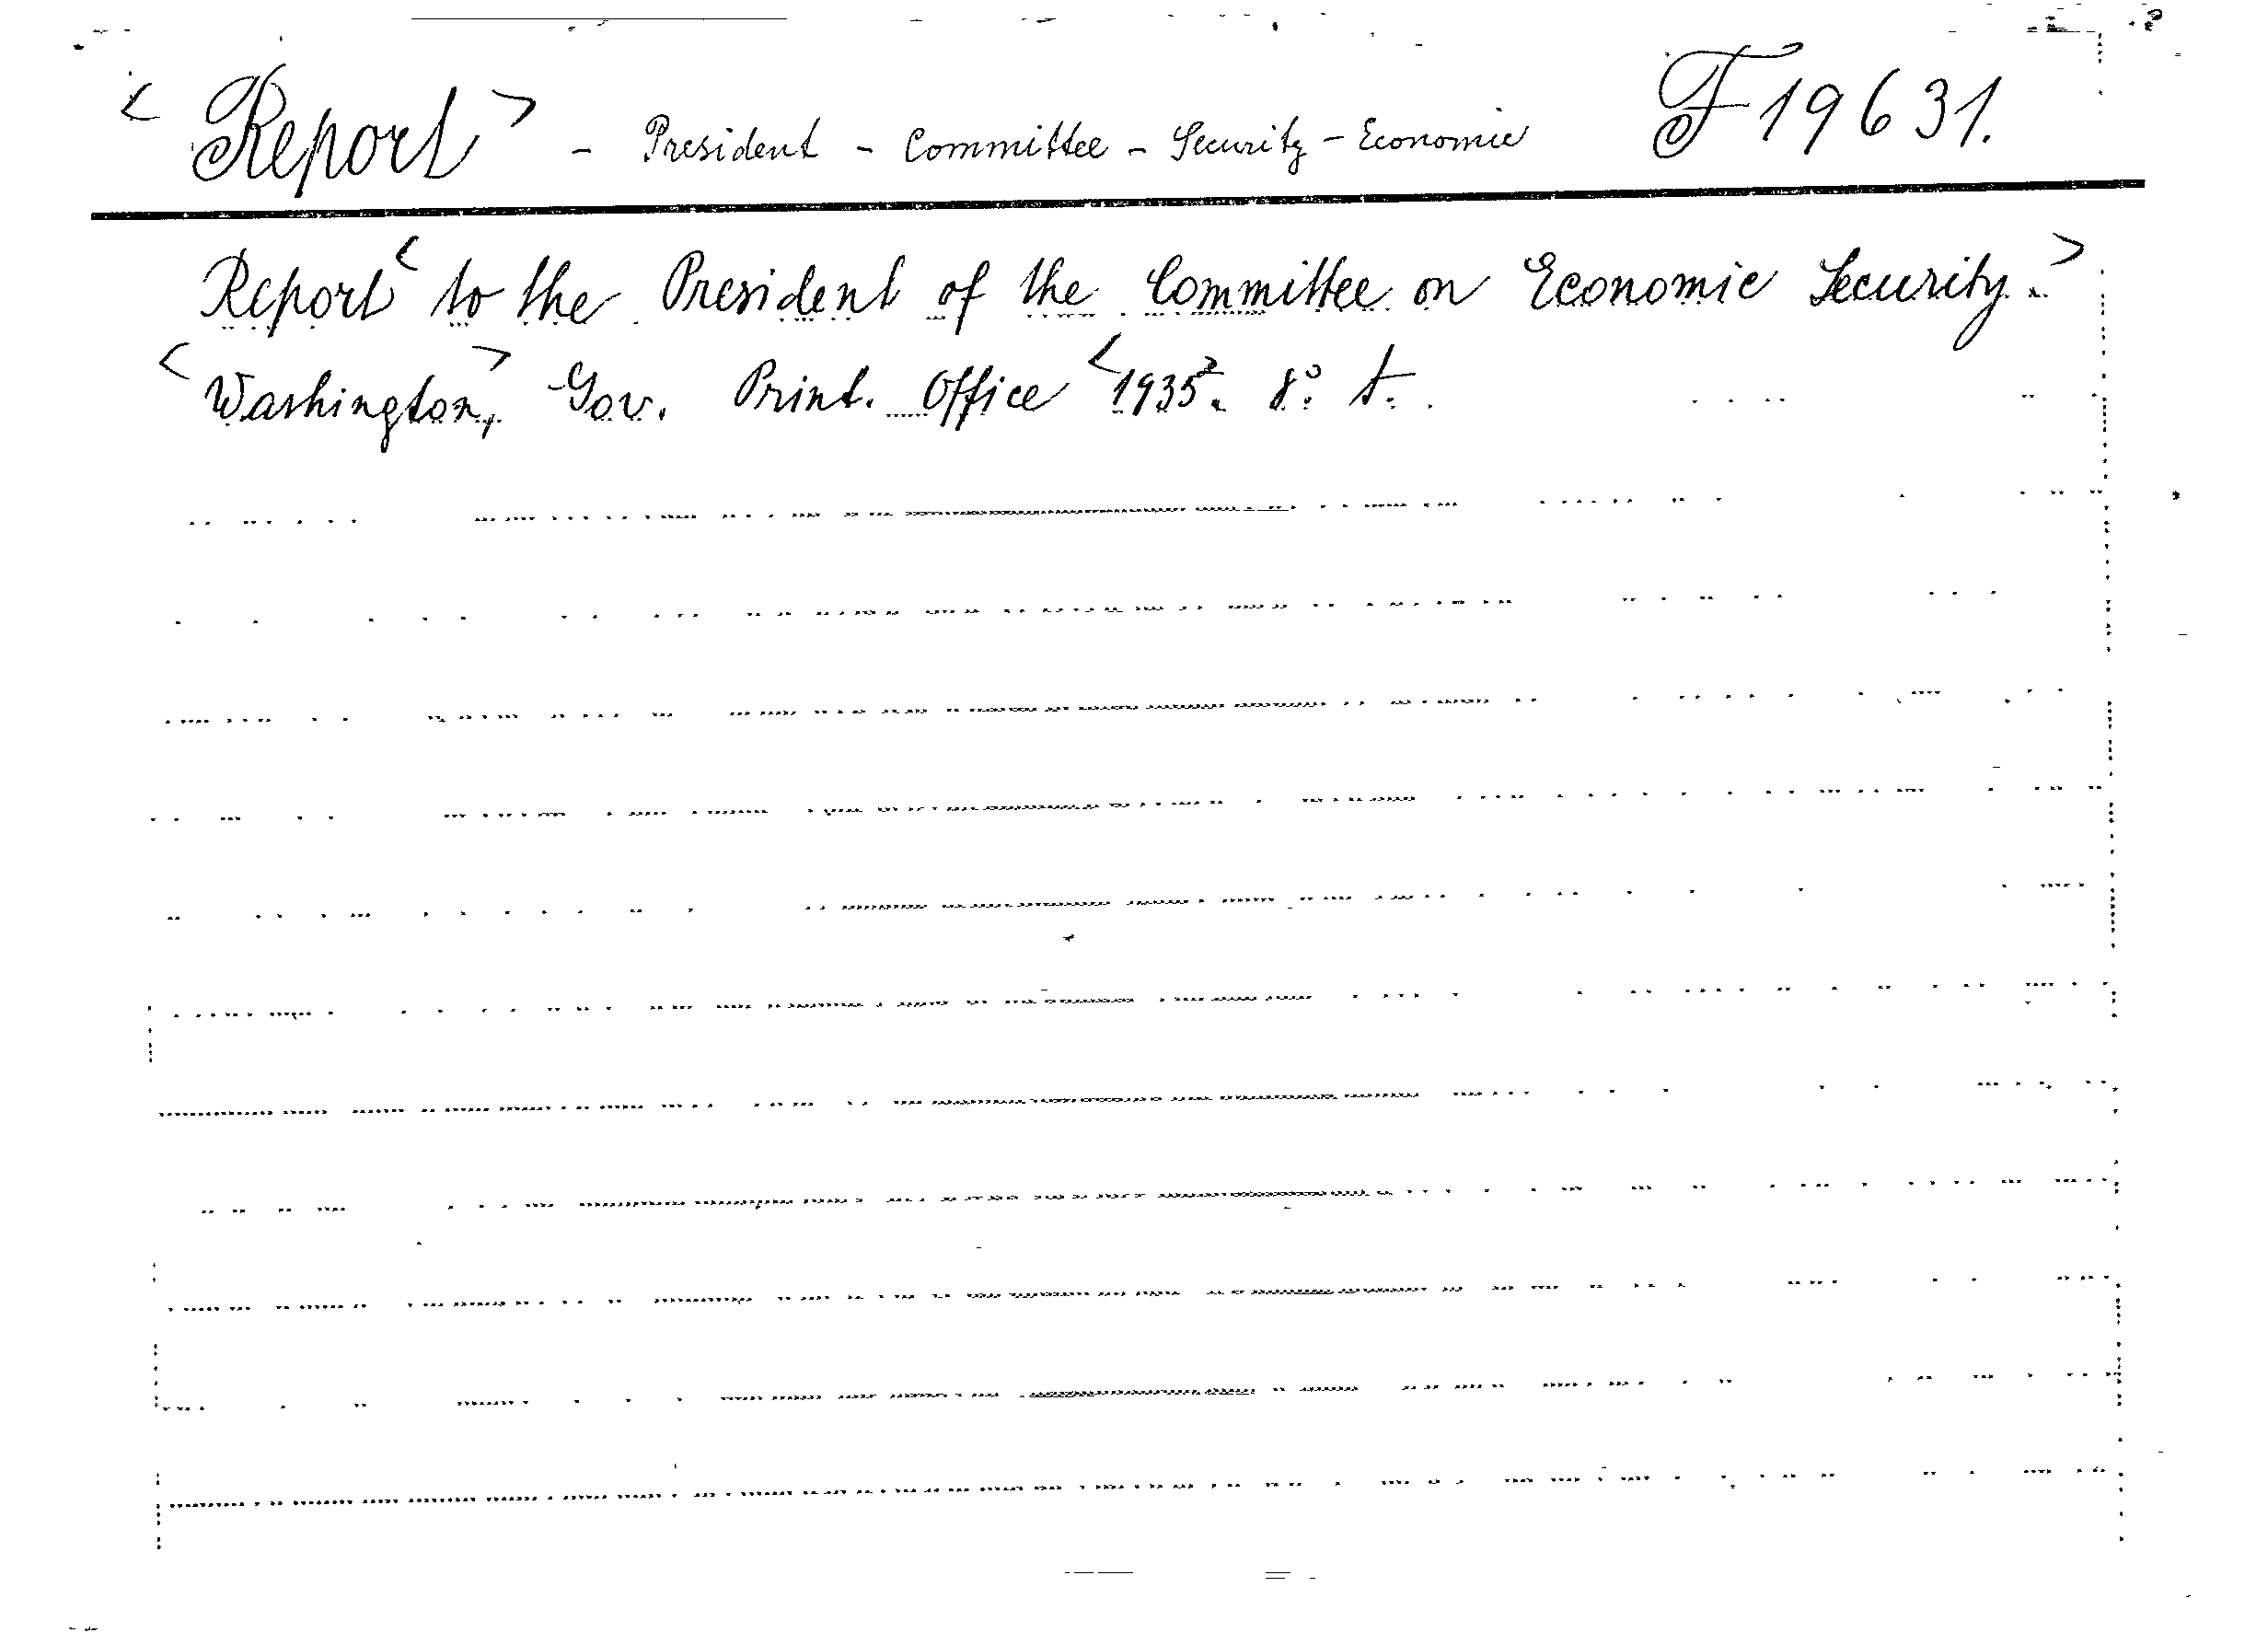 <Report> - President - Committee - Security - Economic F 19631.
Report <to the President of the Committee on Economic Security.>
<Washington,> Gov. Print. Office <1935>. 8°. t.